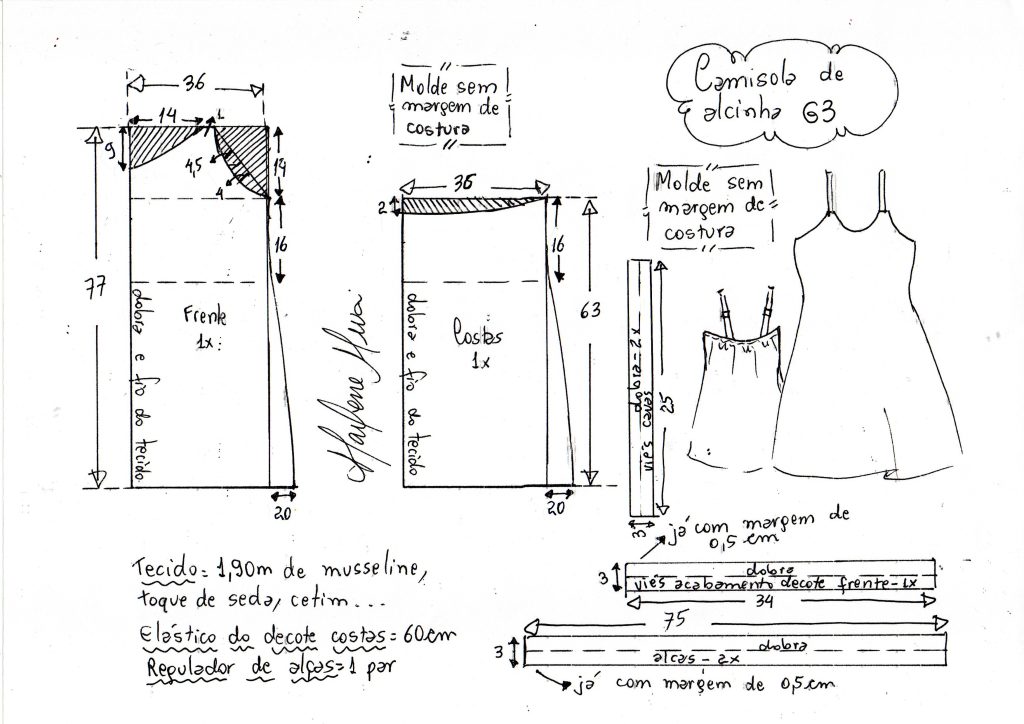 36
14
1
9
4,5
4
14
16
77
dobra e fio do tecido
Frente
1x
20
Molde sem
margem de
costura
36
2
16
63
dobra e fio do tecido
Costas
1x
20
Marlene
Camisola de
alcinha G3
Molde sem
margem de
costura
dobra - 2x
viés cavas
25
3
já com margem de
0,5 cm
3
dobra
viés acabamento decote frente - 1x
34
75
3
dobra
alças - 2x
já com margem de 0,5 cm
Tecido = 1,90m de musseline,
toque de seda, cetim...
Elástico do decote costas = 60cm
Regulador de alças = 1 par